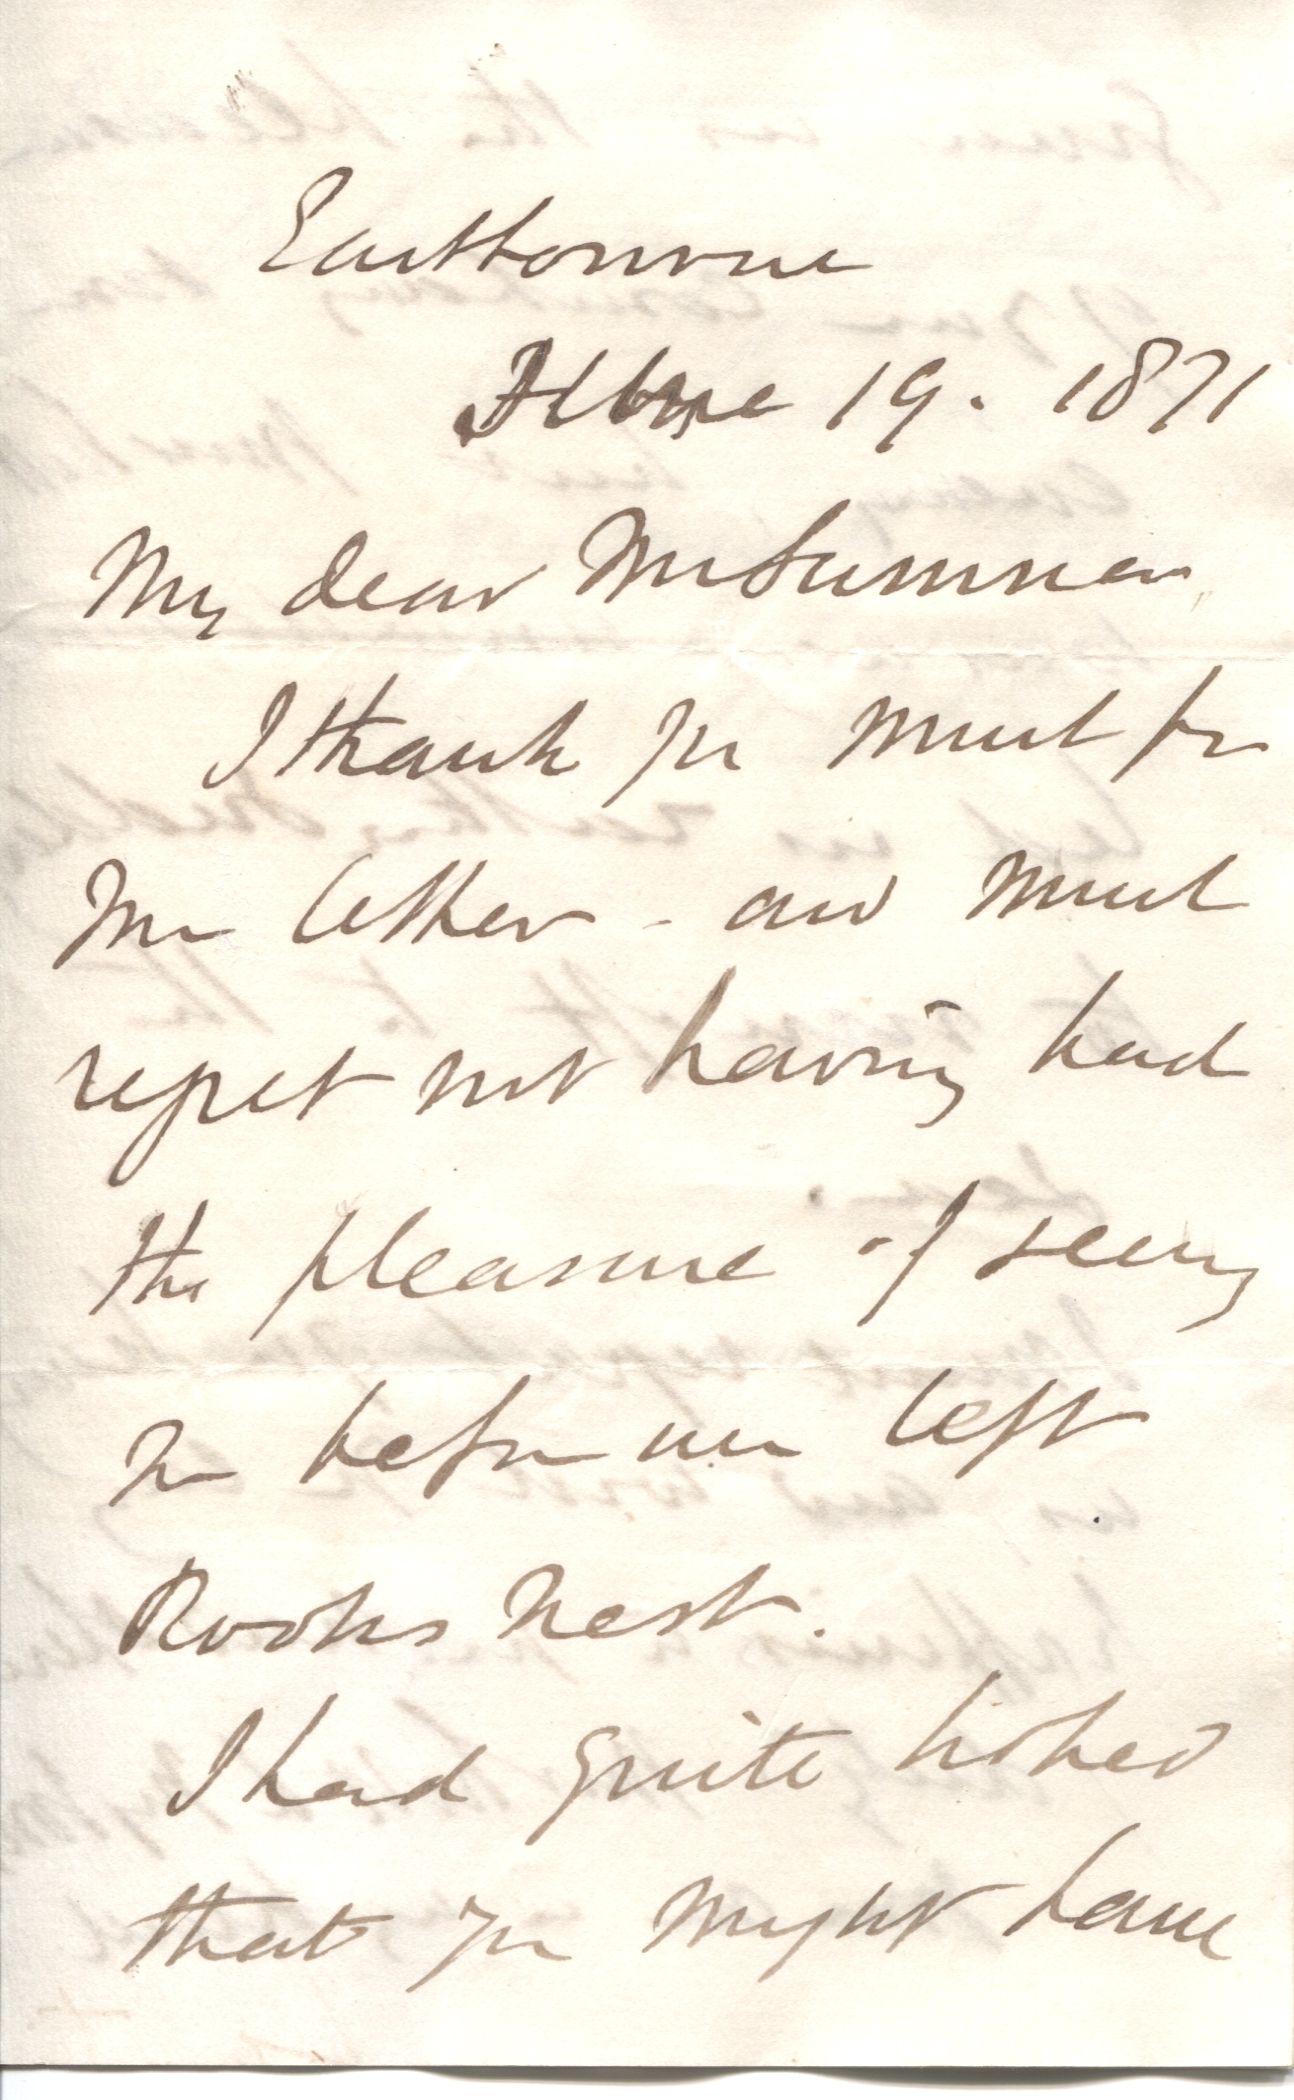 Eastbourne
June 19. 1871
My dear Mr Sumner
I thank you much for
your letter - and much
regret not having had
the pleasure of seeing
you before we left
Rooks Nest.
I had quite hoped
that you might have